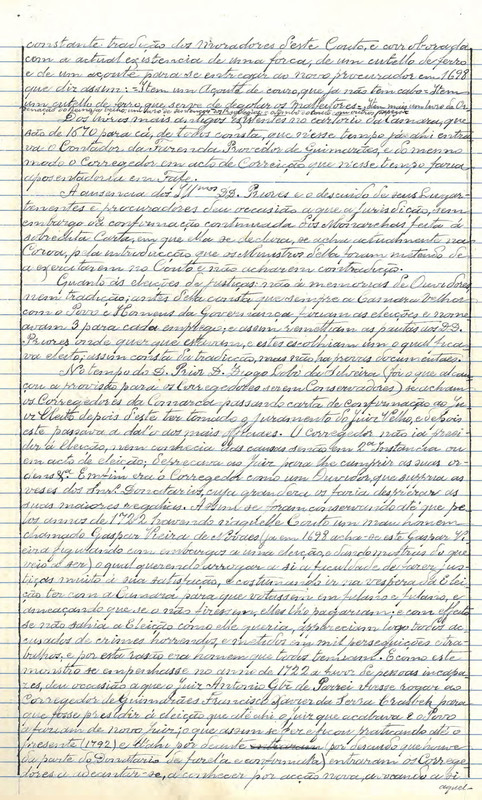 constante tradição dos moradores d'este Couto, e corroborada
com a actual existencia de uma forca, de um cutello de ferro
e de um açoute para se entregar ao novo procurador em 1698
que diz assim: = Item um Açoute de couro, que já não tem cabo = Item
um cutello de ferro, que serve de degolar os malfeitores = Item mais um livro da Or-
Dos livros mais antigos existentes no Archivo da Camara, que
são de 1670 para cá, de todos consta, que n'esse tempo já ahi entra-
va o Contador da Fazenda Provedor de Guimarães, e do mesmo
modo o Corregedor em acto de Correição que n'esse tempo fazia
aposentadoria em Fafe.
A ausencia dos Ill.mos DD. Priores e o descuido de seus Lugar-
tenentes e procuradores deu occasião a que a jurisdição, sem
embargo da confirmação continuada dos Monarchas feita á
sobredita Carta, em que ella se declara, se ache actualmente na
Coroa, pela introducção que os Ministros d'ella foram metendo de
a executarem no Couto e não acharem contradição.
Quanto ás eleições de justiças: não ha memorias de Ouvidores
nem tradição; antes d'ella consta que sempre a Camara Velha
com o Povo e Homens da Governança faziam as eleições e nome-
avam 3 para cada emprego; e assim remettiam as pautas aos DD.
Priores onde quer que estivessem, e estes escolhiam um o qual fica-
va eleito; assim consta da tradicção, mas não ha provas documentaes.
No tempo do D. Prior D. Diogo Lobo da Silveira (foi o que alcan-
çou a provisão para os Corregedores serem Conservadores) se acham
os Corregedores da Comarca passando carta de confirmação ao Ju-
iz Eleito depois d'este ter tomado o juramento do Juiz Velho, e depois
este passava a dal'o aos mais Officiaes. O Corregedor não ia presi-
dir á Eleição, nem conhecia das causas senão em 2.ª Instancia ou
em acto de eleição; Deprecava ao Juiz para lhe cumprir as suas or-
dens &.ª Emfim era o Corregedor como um Ouvidor que suppria as
vezes dos Snr.es Donatarios, cuja grandeza os fazia desprezar as
suas maiores regalias. Assim se foram conservando até que pe-
los annos de 1722 havendo n'aquelle Couto um mau homem
chamado Gaspar Vieira de (já em 1698 acha-se este Gaspar Vi-
eira figurando com embargos a uma eleição, e dando mostras do que
veio a ser) o qual querendo arrogar a si a faculdade de fazer jus-
tiças muito á sua satisfação, e costumando ir na vespera da Elei-
ção ter com a Camara para que votassem em fulano e fulano, e
ameaçando que se o não fizessem, elles lh'o pagariam; e com effeito
se não sahia a Eleição como elle queria, appareciam logo todos ac-
cusados de crimes horrendos, e metidos em mil perseguições e tra-
balhos, e por esta rasão era homem que todos temiam. E como este
monstro se empenhasse no anno de 1722 a favor de pessoas incapa-
zes, deu occasião a que o juiz Antonio Glz de Parrei fosse rogar ao
Corregedor de Guimarães Francisco Xavier da Serra Crasbek para
que fosse presidir á eleição que até ahi o juiz que acabava e o Povo
a faziam de novo juiz; o que assim se fez e ficou praticando até o
presente (1792) e d'ahi por deante (por descuido que houve
da parte do Donatario de fazel-a e confirmal-a) entraram os Correge-
dores a adeantar-se, a conhecer por acção nova, avocando a si
aquel-